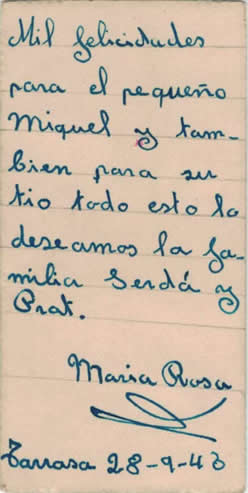 Mil felicidades
para el pequeño
Miquel y tam-
bien para su
tio todo esto lo
deseamos la fa-
milia Serdá y
Prat.
Maria Rosa
Tarrasa 28-9-43